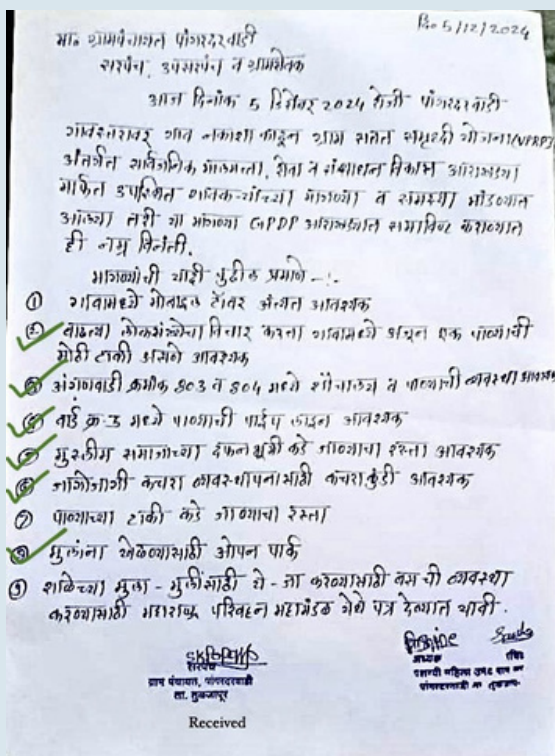 दि० 5/12/2024
मा० ग्रामपंचायत पांगरदरवाडी
सरपंच, उपसरपंच व ग्रामसेवक
आज दिनांक 5 डिसेंबर 2024 रोजी पांगरदरवाडी
गावस्तरावर गाव नकाशा काढून ग्राम समृद्दी योजना (VPRP)
अंतर्गत सार्वजनिक मालमत्ता, सेवा व संसाधन विकास आराखड्या
मार्फत उपस्थित मागण्या व समस्या मांडण्यात
आल्या तरी या मागण्या GPDP आराखड्यात समाविष्ट कराव्यात
ही नम्र विनंती.
मागण्यांची यादी पुढील प्रमाणे -:-
① गावामध्ये मोबाइल टॉवर अत्यंत आवश्यक
② वाढत्या लोकसंख्येचा विचार करता गावामध्ये अजून एक पाण्याची
मोठी टाकी असणे आवश्यक
③ अंगणवाडी क्रमांक 803 व 804 मध्ये शौचालय व पाण्याची व्यवस्था आवश्यक
④ वार्ड क्र-3 मध्ये पाण्याची पाईप लाइन आवश्यक
⑤ मुस्लीम समाजाच्या दफन भूमी कडे जाण्याचा रस्ता आवश्यक
⑥ जागोजागी कचरा व्यवस्थापनासाठी कचराकुंडी आवश्यक
⑦ पाण्याच्या टाकी कडे जाण्याचा रस्ता
⑧ मुलांना खेळण्यासाठी ओपन पार्क
⑨ शाळेच्या मुला-मुलींसाठी ये-जा करण्यासाठी बसची व्यवस्था
करण्यासाठी महाराष्ट्र परिवहन महामंडळ येथे पत्र देण्यात यावी.
सरपंच
ग्राम पंचायत, पांगरदरवाडी
ता. तुळजापूर
Received
अध्यक्ष सचिव
महिला ग्राम संघ
पांगरदरवाडी